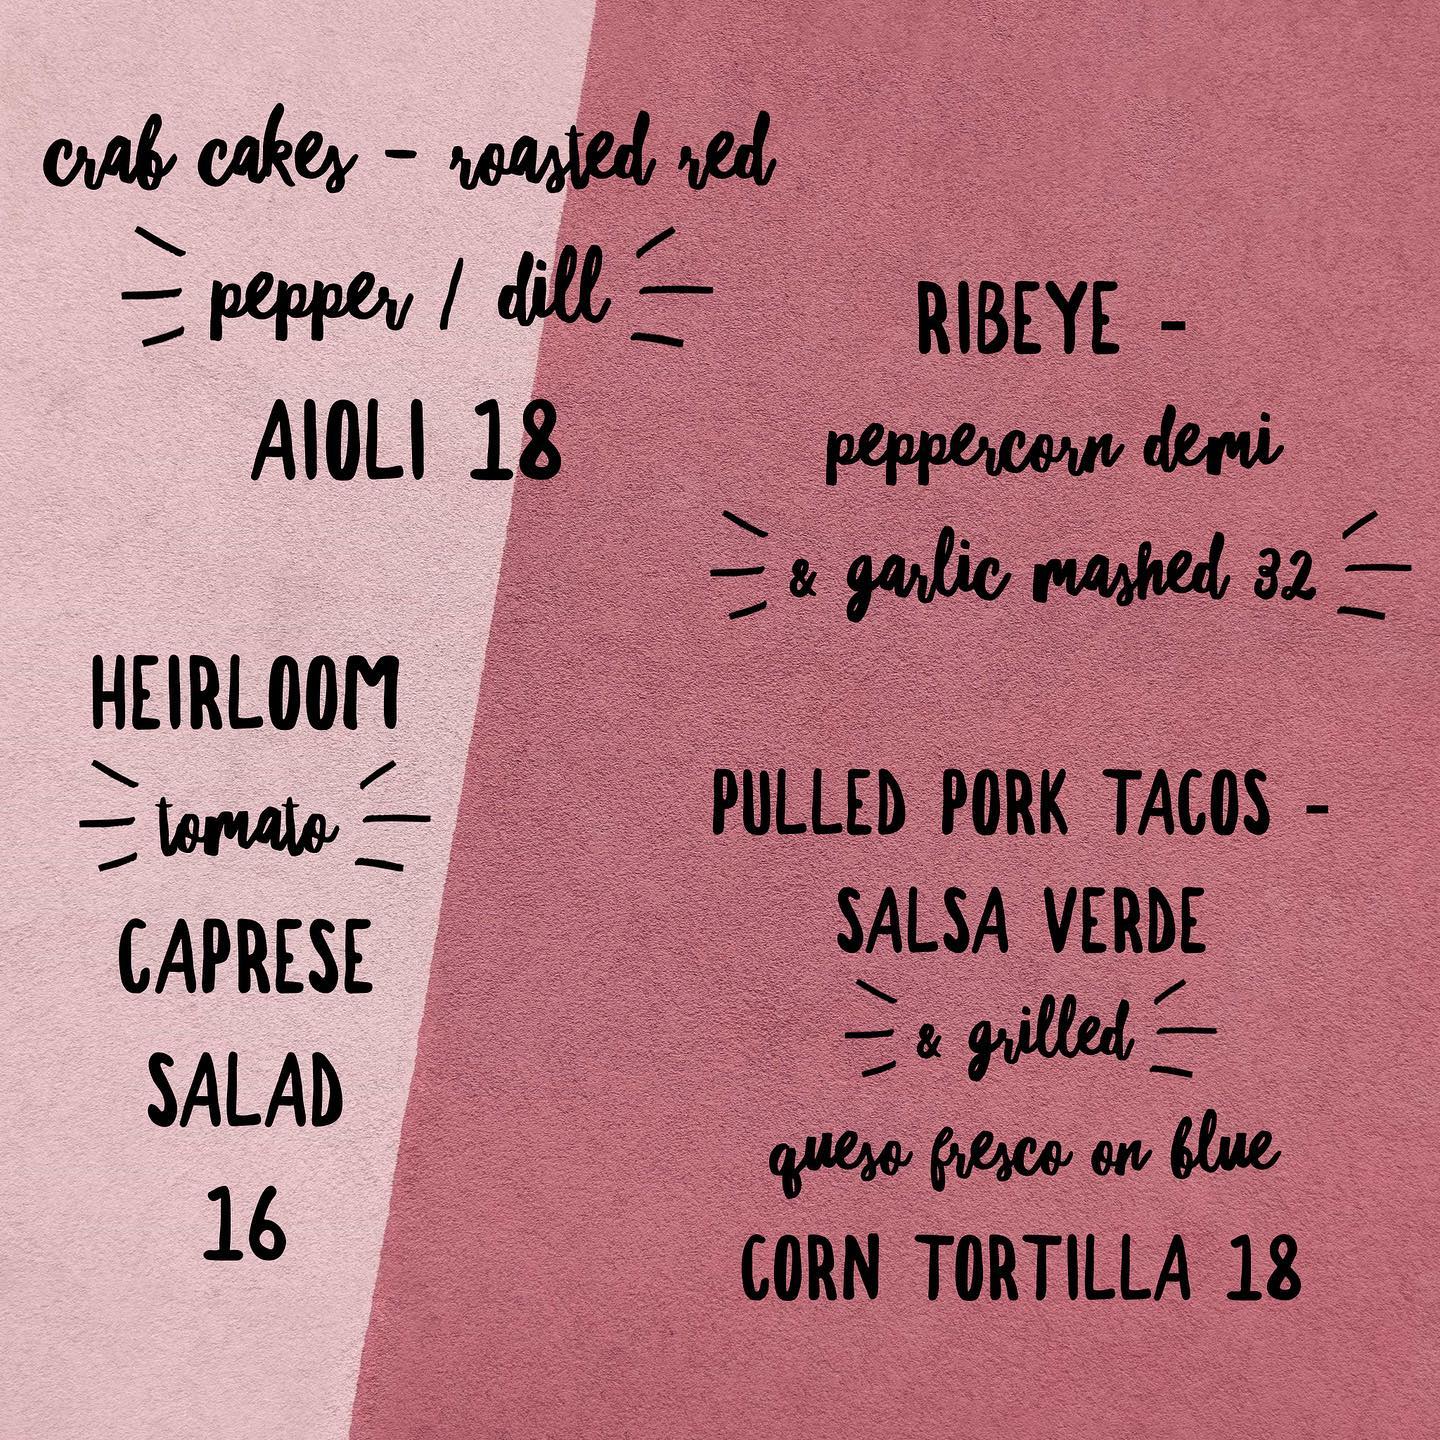 crab cakes - roasted red
pepper / dill
AIOLI 18
HEIRLOOM
tomato
CAPRESE
SALAD
16
RIBEYE -
peppercorn demi
& garlic mashed 32
PULLED PORK TACOS -
SALSA VERDE
& grilled
queso fresco on blue
CORN TORTILLA 18